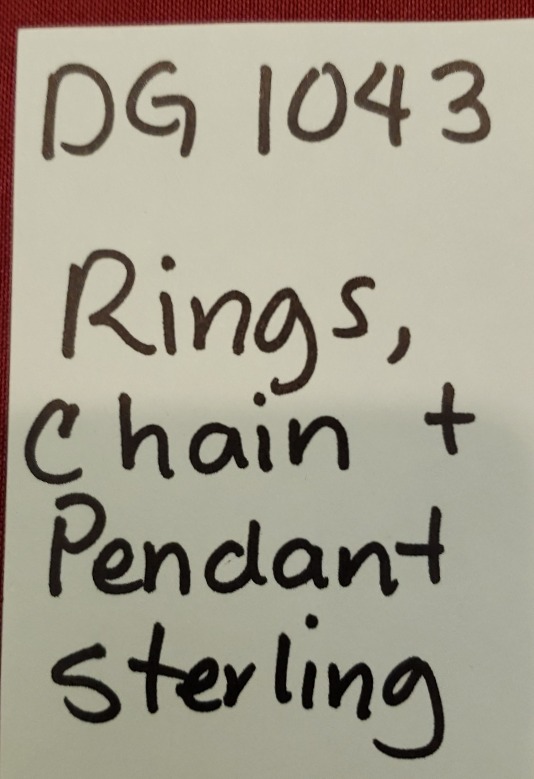 DG 1043
Rings,
Chain +
Pendant
Sterling